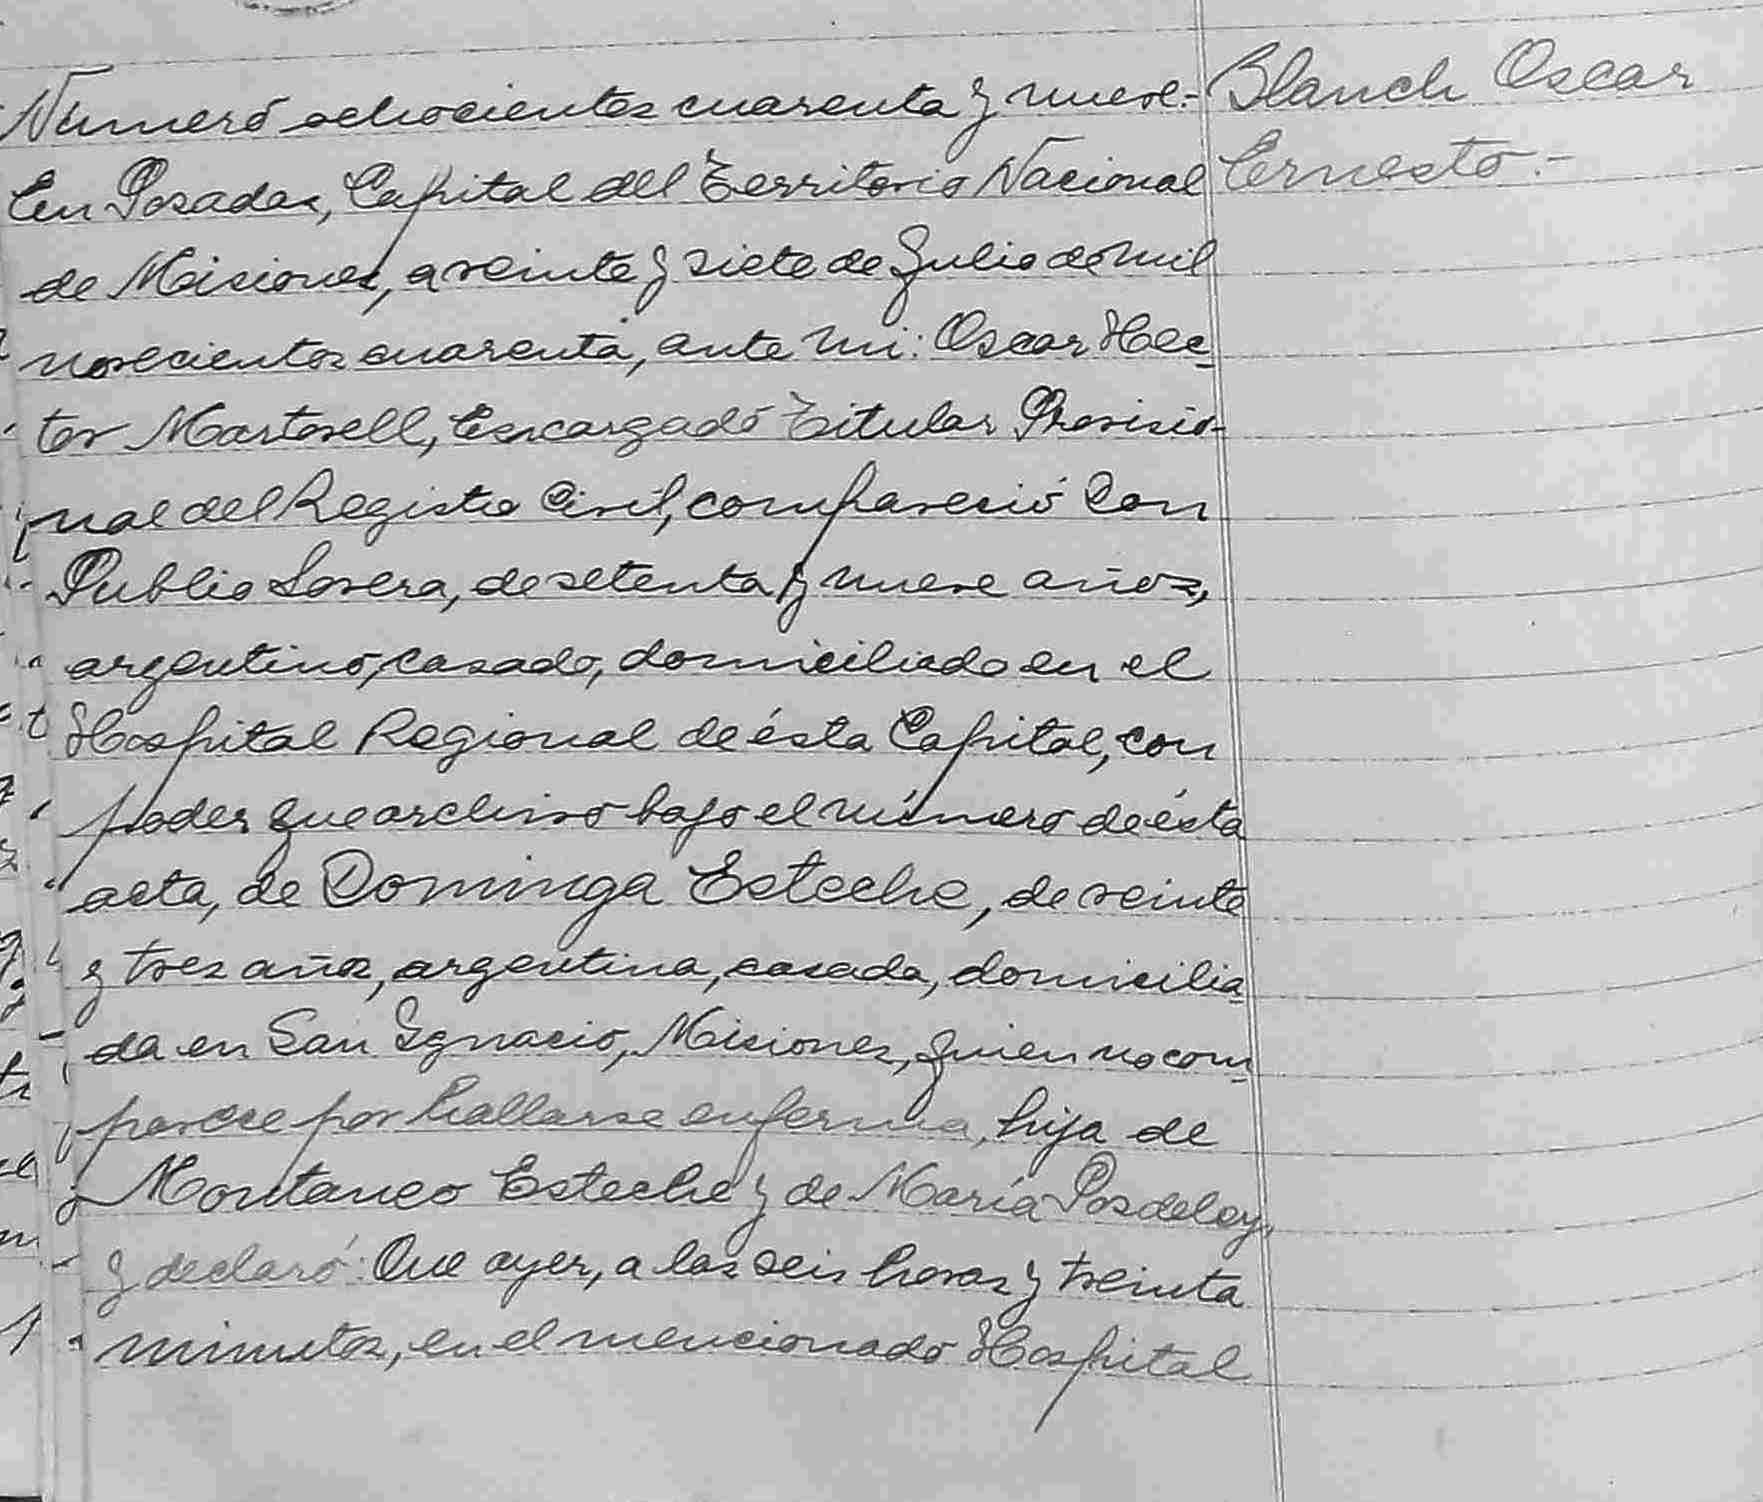 Numeró ochocientos cuarenta y nueve.-
Blanch Oscar
Ernesto.-
En Posadas, Capital del Territorio Nacional
de Misiones, a veinte y siete de Julio de mil
novecientos cuarenta, ante mi: Oscar Hec-
tor Martorell, Encargado Titular Provisio-
nal del Registro Civil, compareció Don
Publio Lovera, de setenta y nueve años,
argentino, casado, domiciliado en el
Hospital Regional de ésta Capital, con
poder que archivo bajo el número de ésta
acta, de Dominga Esteche, de veinte
y tres años, argentina, casada, domicilia-
da en San Ignacio, Misiones, quien no com-
parece por hallarse enferma, hija de
Montaneo Esteche y de María Posdeley,
y declaró: Que ayer, a las seis horas y treinta
minutos, en el mencionado Hospital